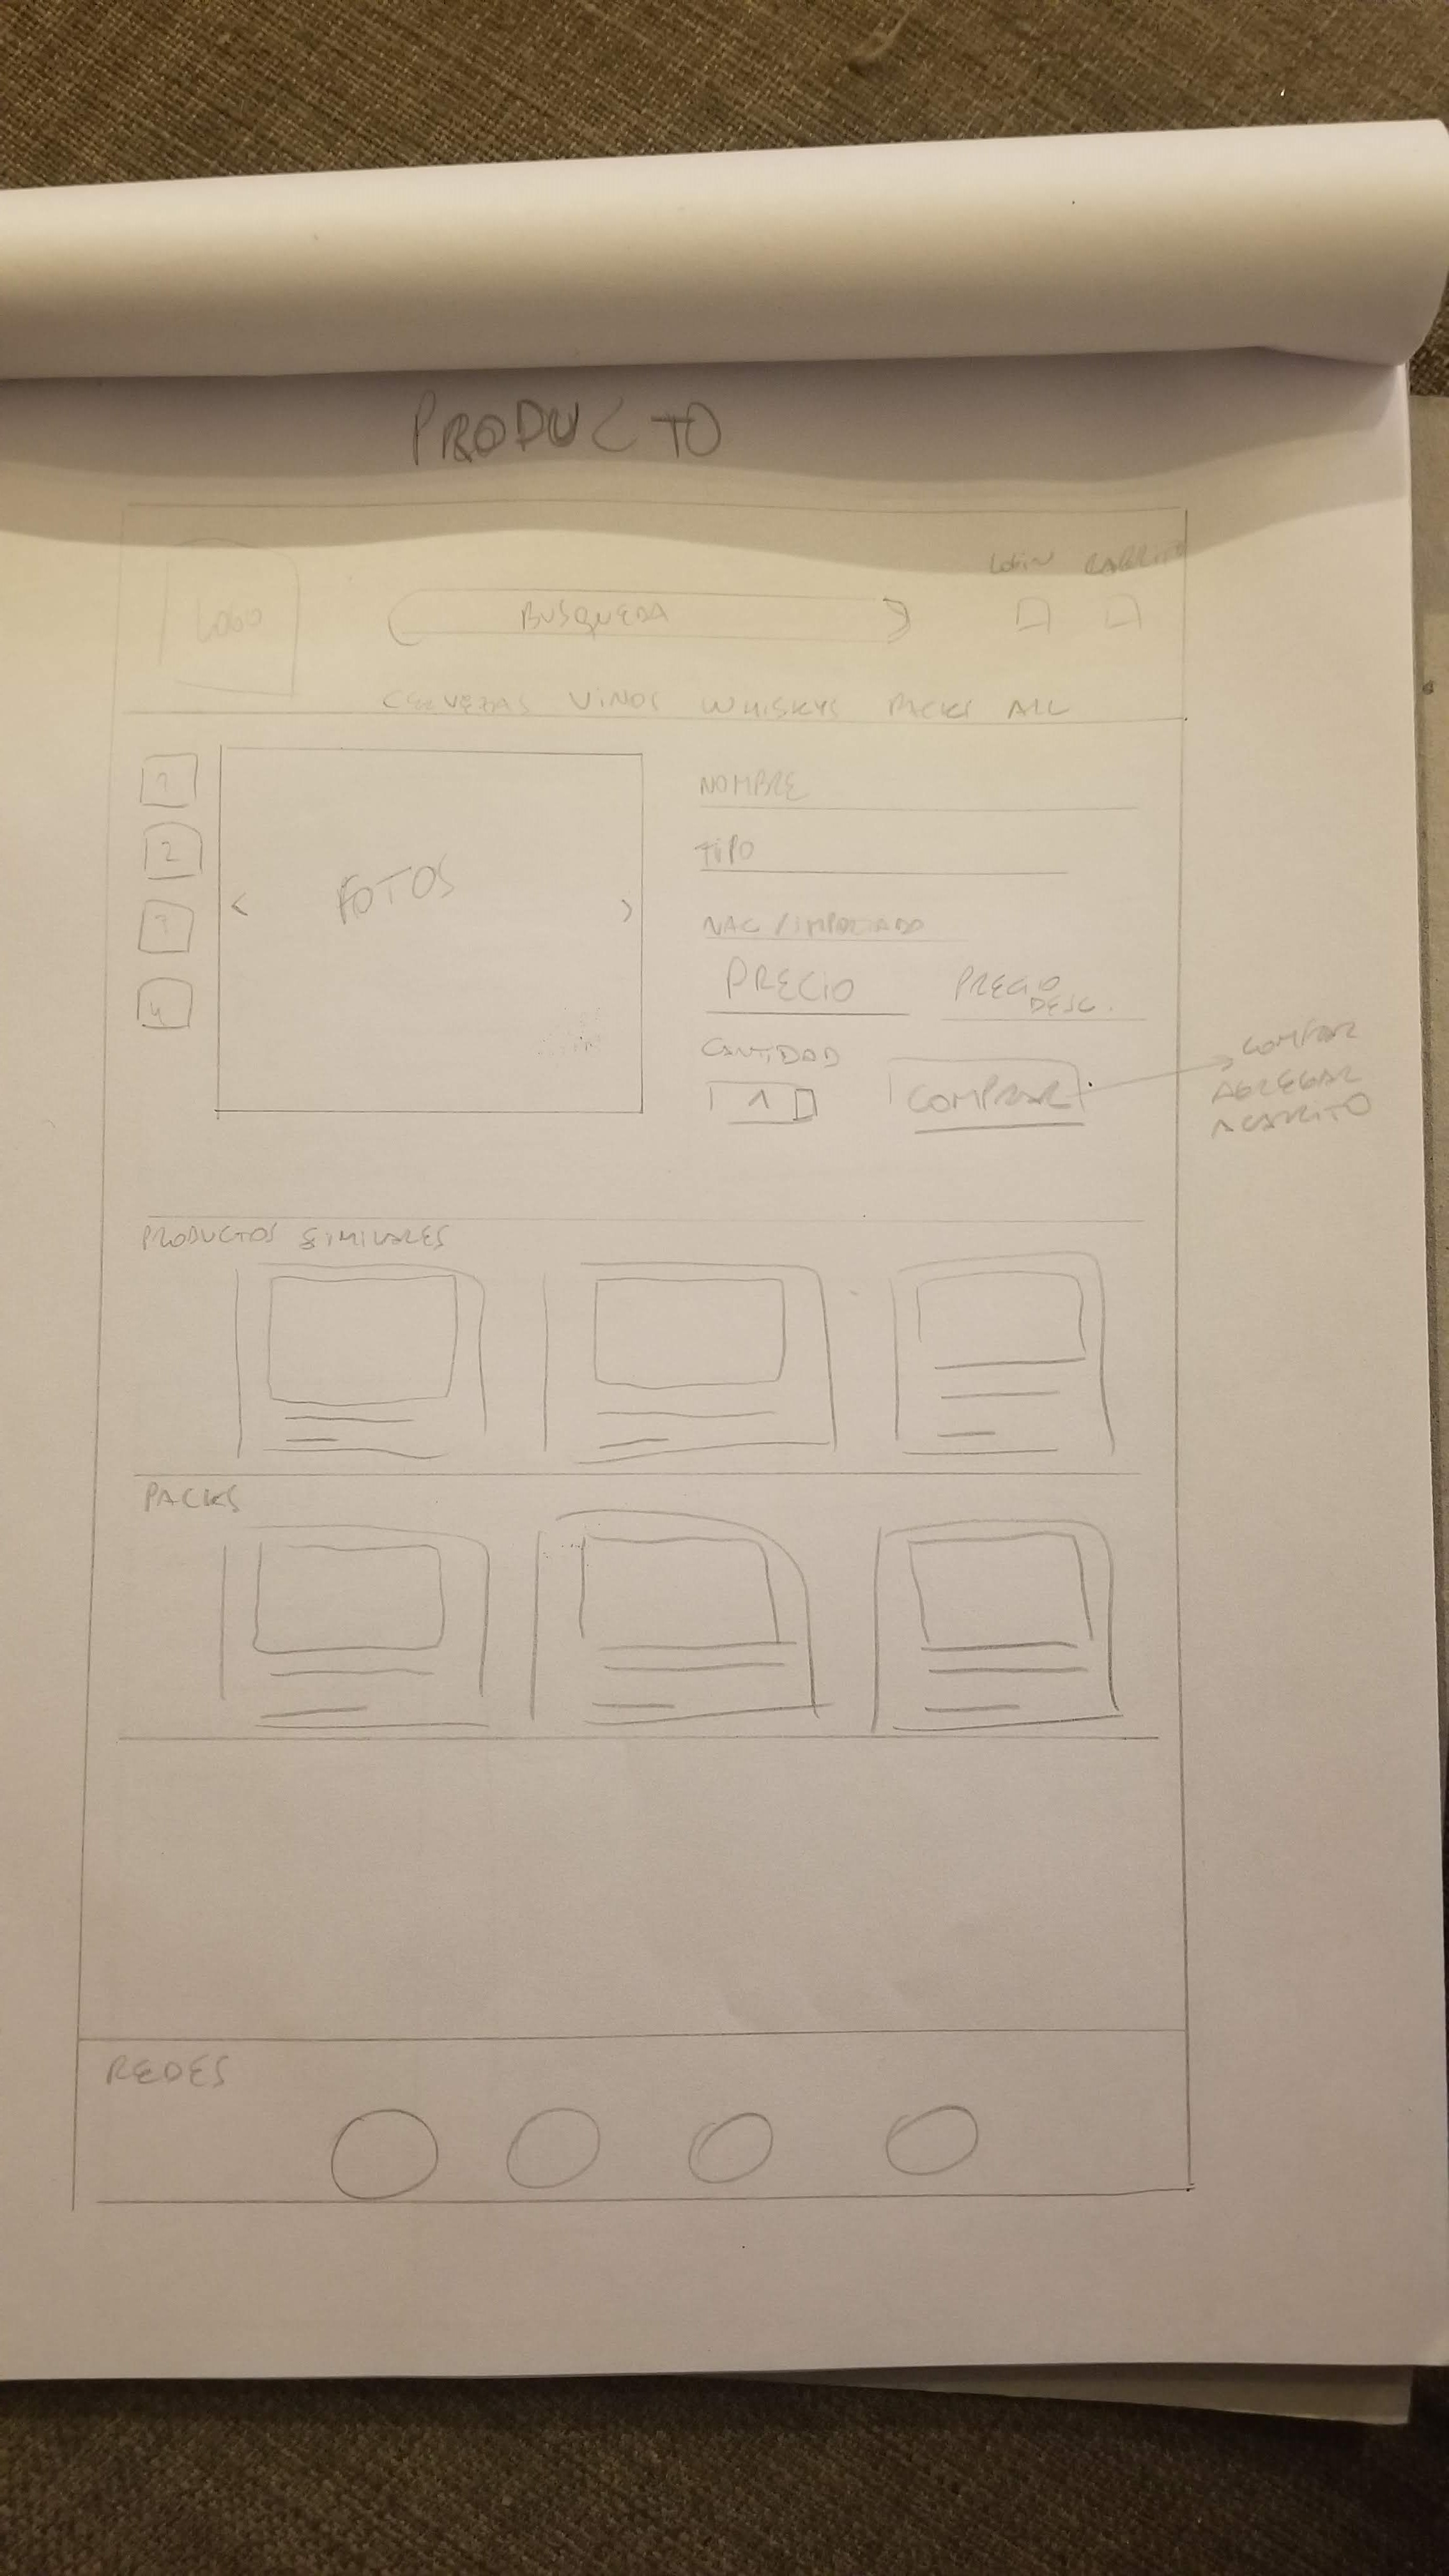 PRODUCTO
LOGIN CARRITO
LOGO
BUSQUEDA
CERVEZAS VINOS WHISKYS PACKS ALL
1
2
4
< FOTOS >
NOMBRE
TIPO
NAC / IMPORTADO
PRECIO
PRECIO
DESC.
CANTIDAD
1
COMPRAR
COMPRAR
AGREGAR
A CARRITO
PRODUCTOS SIMILARES
PACKS
REDES